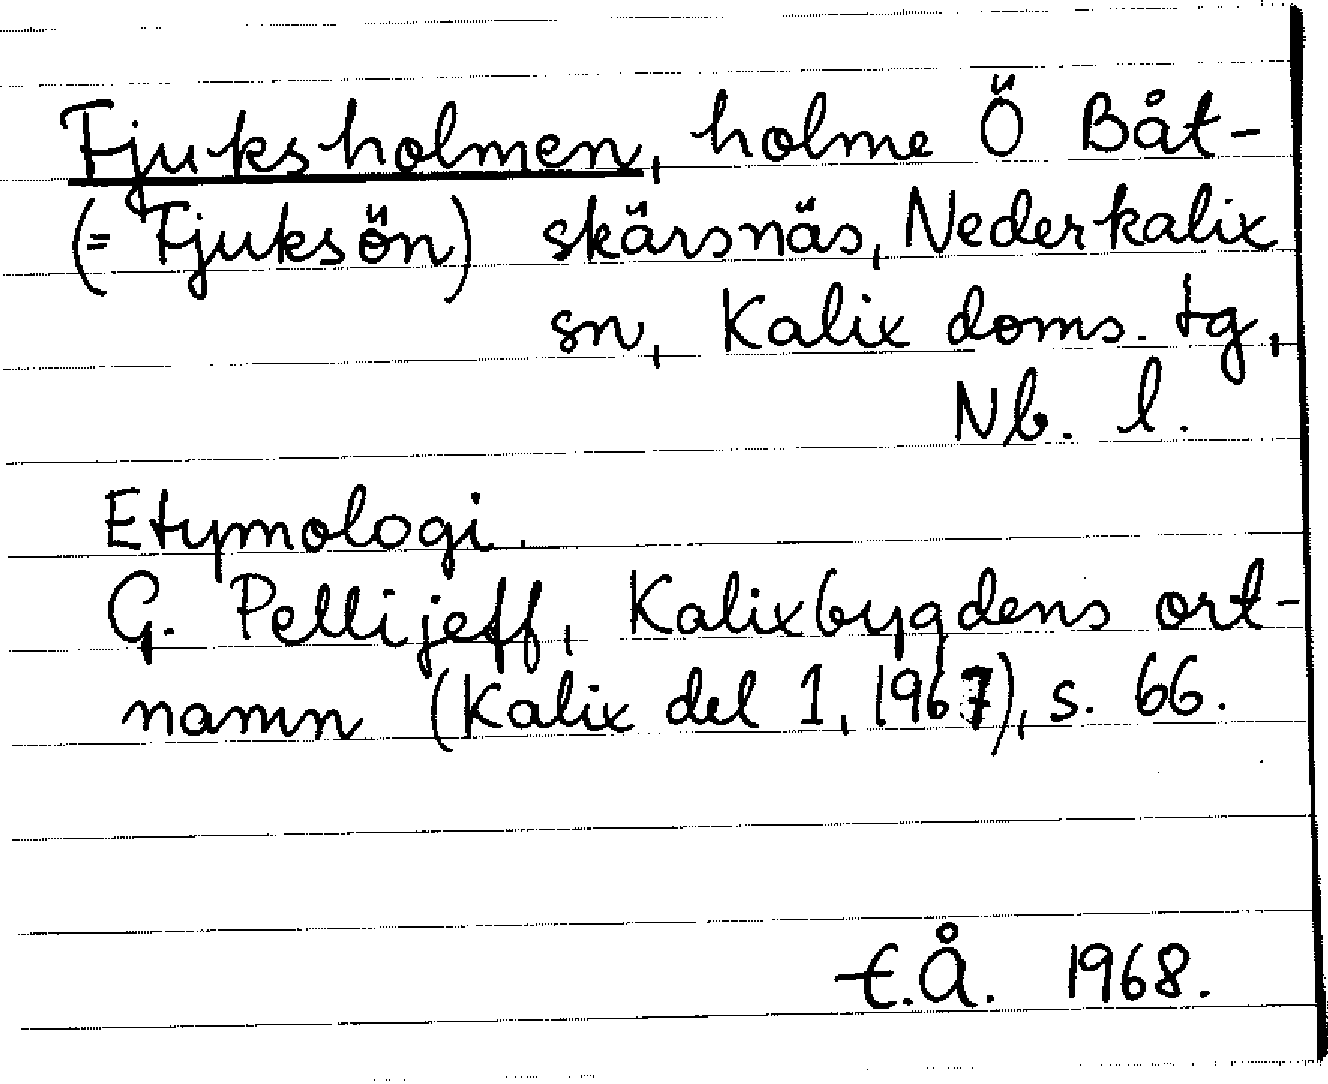 Fjuksholmen, holme Ö Båt-
(= Fjuksön) skärsnäs, Nederkalix
sn, Kalix doms. tg,
Nb. l.
Etymologi.
G. Pellijeff, Kalixbygdens ort-
namn (Kalix del 1, 1967), s. 66.
t.Å. 1968.